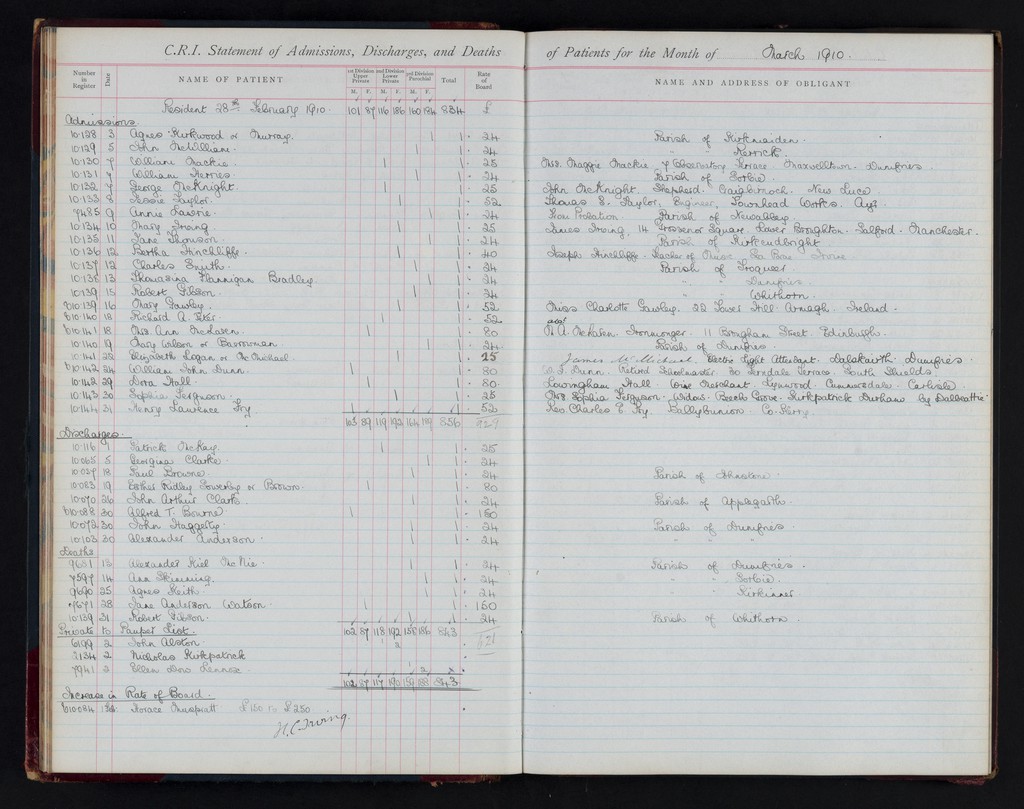 C.R.I. Statement of Admissions, Discharges, and Deaths of Patients for the Month of March 1910.
Number in Register Date NAME OF PATIENT 1st Division Upper Private 2nd Division Lower Private 3rd Division Parochial Total Rate of Board NAME AND ADDRESS OF OBLIGANT
M. F. M. F. M. F.
Resident 28th February 1910 101 87 116 186 160 184 834 £
Admissions
10128 3 Agnes Kirkwood or Murray 1 1 24 Parish of Kirkmaiden
10129 5 John McWilliam 1 1 24 " " Kerrick
10130 7 William Mackie 1 1 25 Mrs. Maggie Mackie, 7 Observatory Terrace Maxwelltown Dumfries
10131 7 William Kerries 1 1 24 Parish of Sorbie
10132 7 George McKnight 1 1 25 John McKnight. Shepherd. Craigbirnoch. New Luce
10133 8 Jessie Taylor 1 1 52 Thomas S. Taylor, Engineer, Townhead Works. Ayr
7485 9 Annie Lawrie 1 1 24 From Probation. Parish of Newabbey
10134 10 Mary Irving 1 1 25 James Irving, 14 Grosvenor Square Lower Broughton. Salford. Manchester.
10135 11 Jane Thomson 1 1 24 Parish of Kirkcudbright
10136 12 Bertha Hinchliffe 1 1 40 Joseph Hinchliffe. Teacher of Music
10137 12 Charles Smith 1 1 24 Parish of Troqueer
10138 13 Thomasina Hannigan Bradley 1 1 24 " " Dumfries
10139 15 Robert Gibson 1 1 24 " " Whithorn.
b10139 16 Mary Gawley 1 1 52 Miss Charlotte Gawley. 22 Tower Hill Armagh. Ireland
b10140 18 Richard A. 1 1 52
b10141 18 Mrs. Ann McLaren 1 1 80 A. McLaren. Ironmonger. 11 Brougham Street. Edinburgh.
10140 19 Mary Wilson or Bannerman 1 1 24 Parish of Dumfries
10141 22 Elizabeth Logan or McMichael 1 1 25 James McMichael. Electric Light Attendant. Dalskairth Dumfries
b10142 24 William John Dunn 1 1 80 W. J. Dunn. Retired Schoolmaster. 30 Ferndale Terrace. South Shields
10142 29 Dora Hall 1 1 80 Lovingham Hall. Wine Merchant. Lynwood. Cummersdale. Carlisle
10143 30 Sophia Ferguson 1 1 25 Mrs. Sophia Ferguson. Widow. Beech Grove. Kirkpatrick Durham by Dalbeattie
10144 31 Henry Lawrence Fry 1 1 52 Rev Charles E. Fry. Ballybunion Co. Kerry
103 89 119 192 164 189 856 929
Discharges
10116 1 Patrick McKay 1 1 25
10065 5 Georgina Clarke 1 1 24
10027 18 Paul Browne 1 1 24 Parish of Johnstone
10083 19 Esther Ridley Sowerby or Browne 1 1 80
10070 26 John Arthur Clark 1 1 24 Parish of Applegarth
b10088 30 Alfred T. Bowne 1 1 150
10072 30 John Haggerty 1 1 24 Parish of Dumfries
10103 30 Alexander Anderson 1 1 24 " " "
Deaths
9651 13 Alexander Kiel McNie 1 1 24 Parish of Dumfries
7597 14 Ann Skimming 1 1 24 " " Sorbie
9690 25 Agnes Keith 1 1 24 " " Kirkinner
7671 28 Jane Anderson Watson 1 1 150
10139 31 Robert Gibson 1 1 24 Parish of Whithorn
Private to Pauper List 102 87 118 192 158 186 843
6199 2 John Alston 1
2134 2 Nicholas Kirkpatrick
7941 2 Ellen Lennox 1 2
102 87 117 190 159 188 843
Increase in Rate of Board
b10084 Horace Muspratt £150 to £250
H. C. Irving.